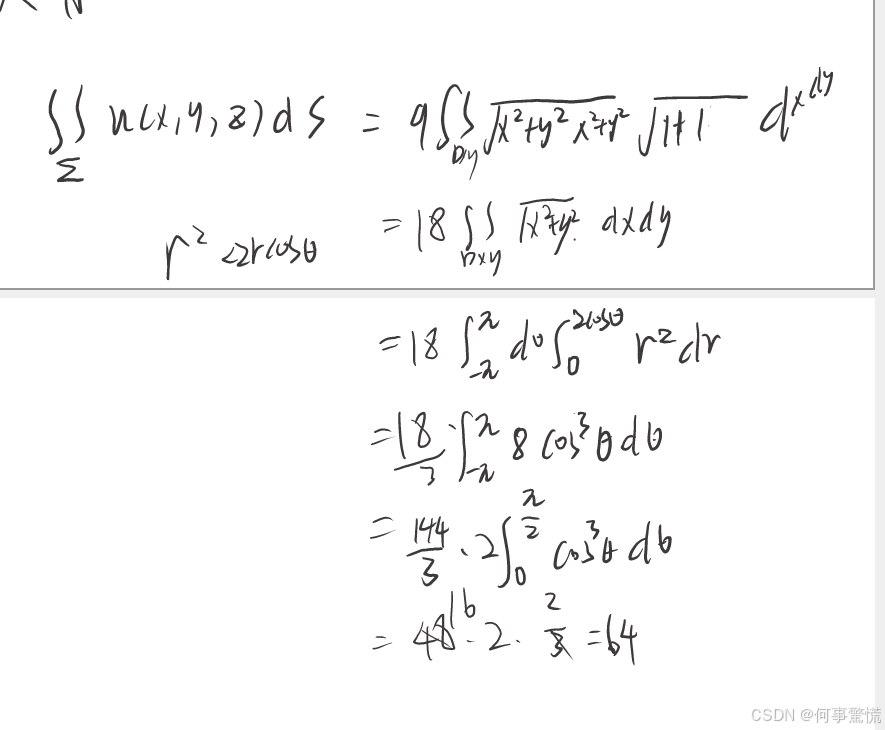 ∬_Σ u(x,y,z)dS = 9∬_Dxy √(x²+y² x²+y²) √(1+1) dxdy
r² ≤2rcosθ = 18∬_Dxy √(x²+y²) dxdy
= 18 ∫_{-π}^{π} dθ ∫_0^{2cosθ} r²dr
= 18/3 · ∫_{-π}^{π} 8 cos³θ dθ
= 144/3 · 2∫_0^{π/2} cos³θ dθ
= 48 16 · 2 · 2/3 = 64
CSDN @何事驚慌